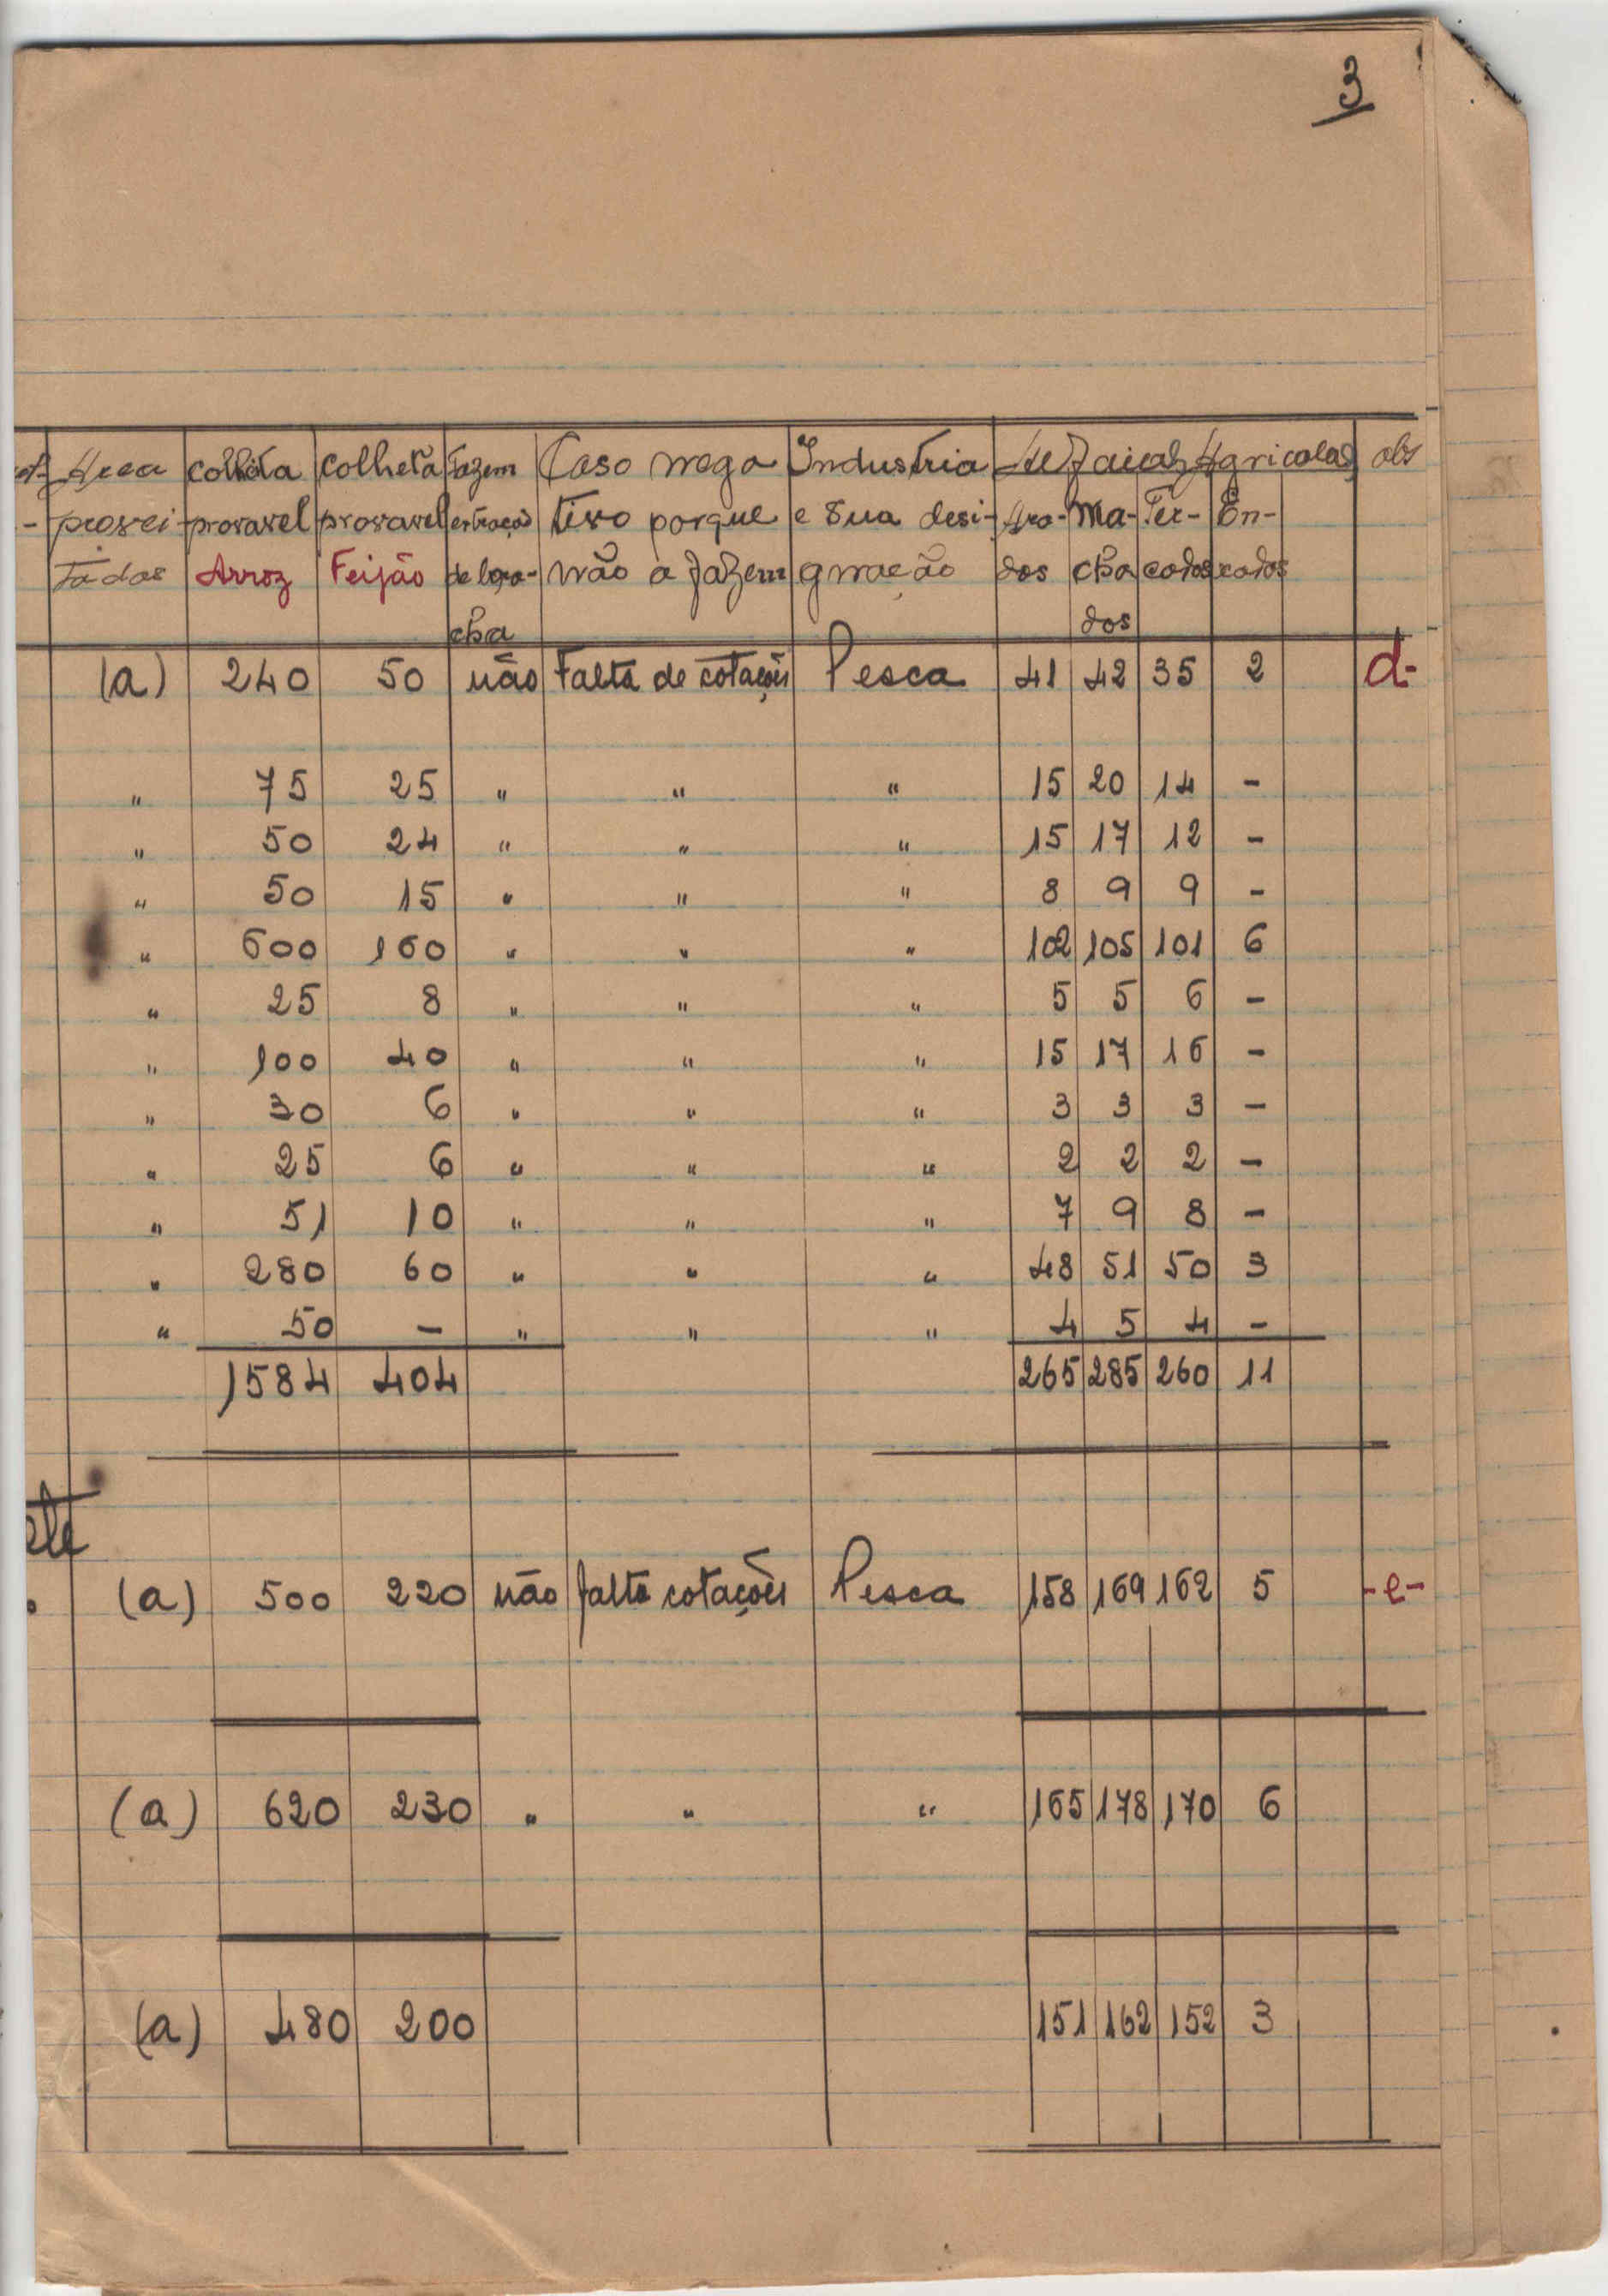 3
Area colheita colheta fazem Caso nega Industria Alfaias Agricolas obs
- provei provavel provavel extração tivo porque e sua desi- Ara- Ma- Ter- En-
tadas Arroz Feijão de bora- não a fazem gnação dos cha çados xadas
cha dos
(a) 240 50 não Falta de cotações Pesca 41 42 35 2 d-
" 75 25 " " " 15 20 14 -
" 50 24 " " " 15 17 12 -
" 50 15 " " " 8 9 9 -
" 600 160 " " " 102 105 101 6
" 25 8 " " " 5 5 6 -
" 100 40 " " " 15 17 16 -
" 30 6 " " " 3 3 3 -
" 25 6 " " " 2 2 2 -
" 51 10 " " " 7 9 8 -
" 280 60 " " " 48 51 50 3
" 50 - " " " 4 5 4 -
1584 404 265 285 260 11
(a) 500 220 não falta cotações Pesca 158 169 162 5 -e-
(a) 620 230 " " " 165 178 170 6
(a) 480 200 151 162 152 3